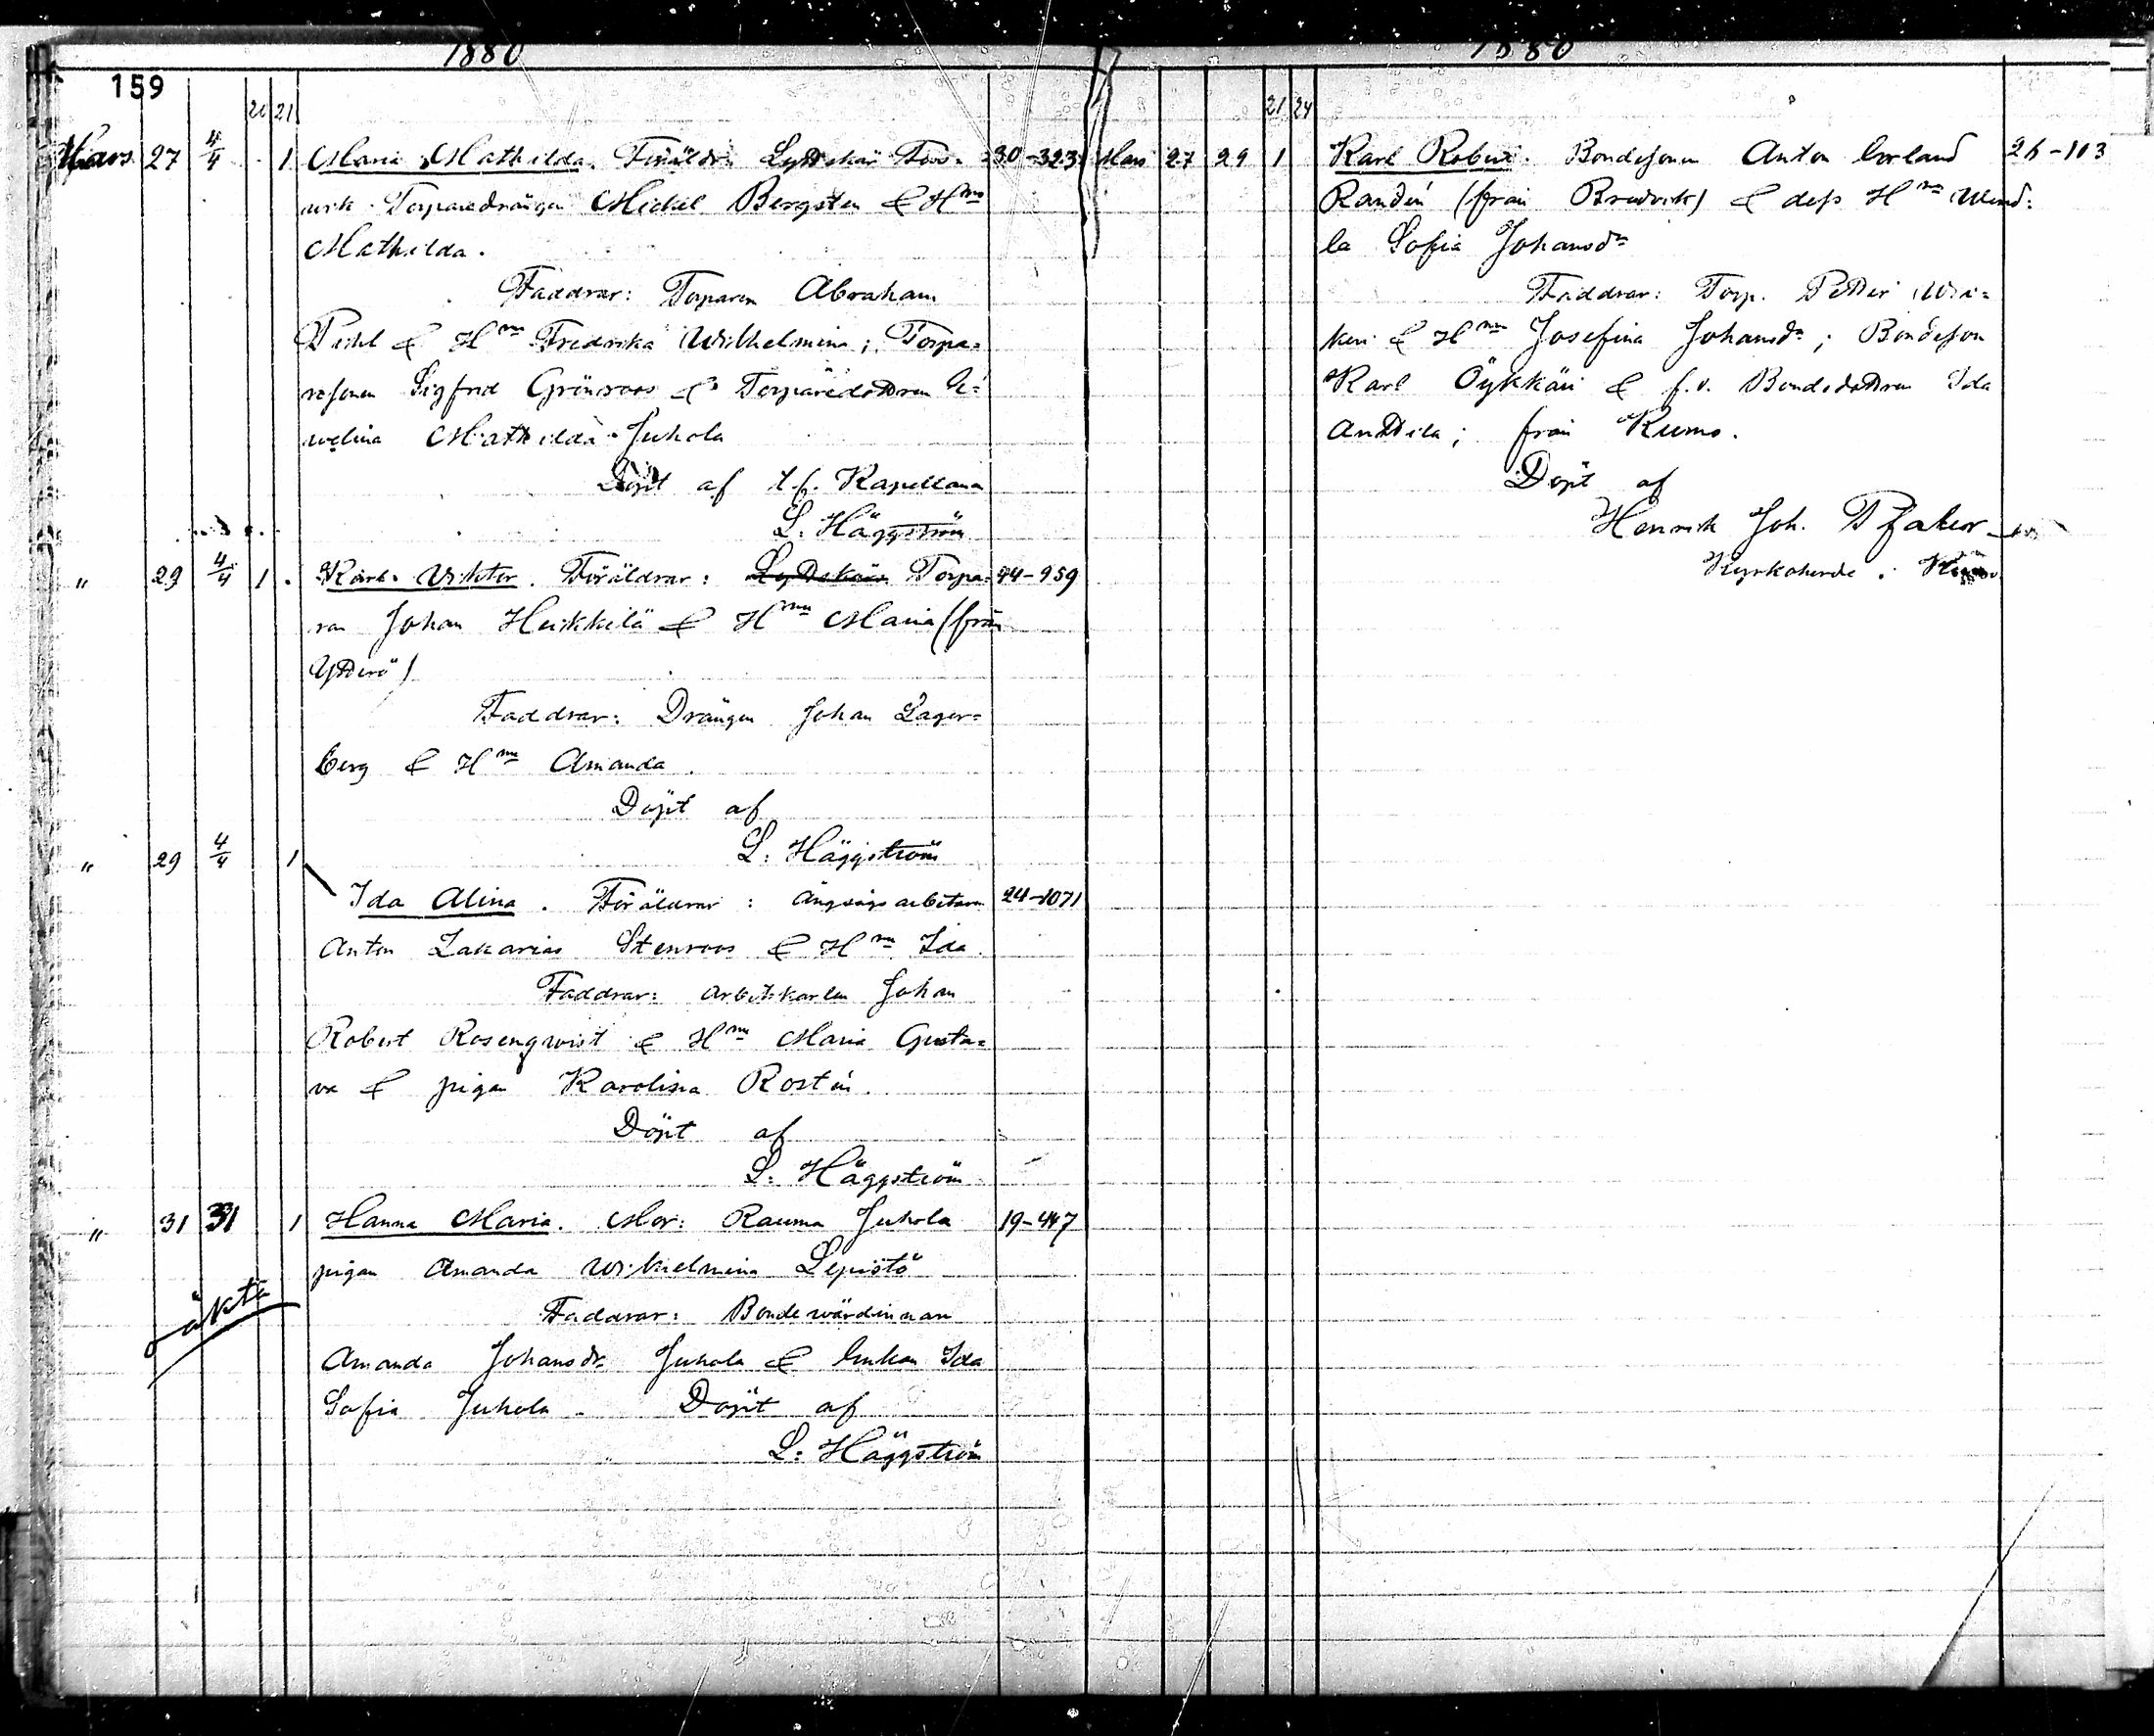 1880
159
20 21
Mars 27 4/4 1 Maria Mathilda. Föräldr: Lyttskär Toro= 30-323
wik Torparedrängen Mickel Bergsten & Hu
Mathilda.
Faddrar: Torparen Abraham
& Hu Fredrika Wilhelmina; Torpa=
resonen Sigfrid Grönroos & Torparedottren E=
welina Mathilda Juhola
Döpt af t.f. Kapellanen
L. Häggström
" 29 4/4 1 Karl Viktor. Föräldrar: Lyttskär Torpa= 44-959
ren Johan Heikkilä & Hu Maria (från
Ytterö)
Faddrar: Drängen Johan Lager=
berg & Hu Amanda.
Döpt af
L. Häggström
" 29 4/4 1
Ida Alina. Föräldrar: ångsågsarbetaren 24-1071
Anton Zakarias Stenroos & Hu Ida.
Faddrar: Arbetskarlen Johan
Robert Rosenqwist & Hu Maria Gusta=
va & pigan Karolina Rostén.
Döpt af
L. Häggström
" 31 31 1 Hanna Maria. Mor: Rauma Juhola 19-447
pigan Amanda Wilhelmina Lepistö
oäkta
Faddrar: Bondewärdinnan
Amanda Johansdr. Juhola & Enkan Ida
Sofia Juhola. Döpt af
L. Häggström
1880
21 24
Mars 27 29 1 Karl Robert. Bondesonen Anton Corland 26-103
Randén (från Bredvik) & dess Hu Wend=
la Sofia Johansdr
Faddrar: Torp. Petter Wi=
keri & Hu Josefina Johansdr; Bondeson
Karl Öykkäri & f.v. Bondedottren Ida
Anttila; från Kumo.
Döpt af
Henrik Joh. Pfaler
Kyrkoherde i Kumo